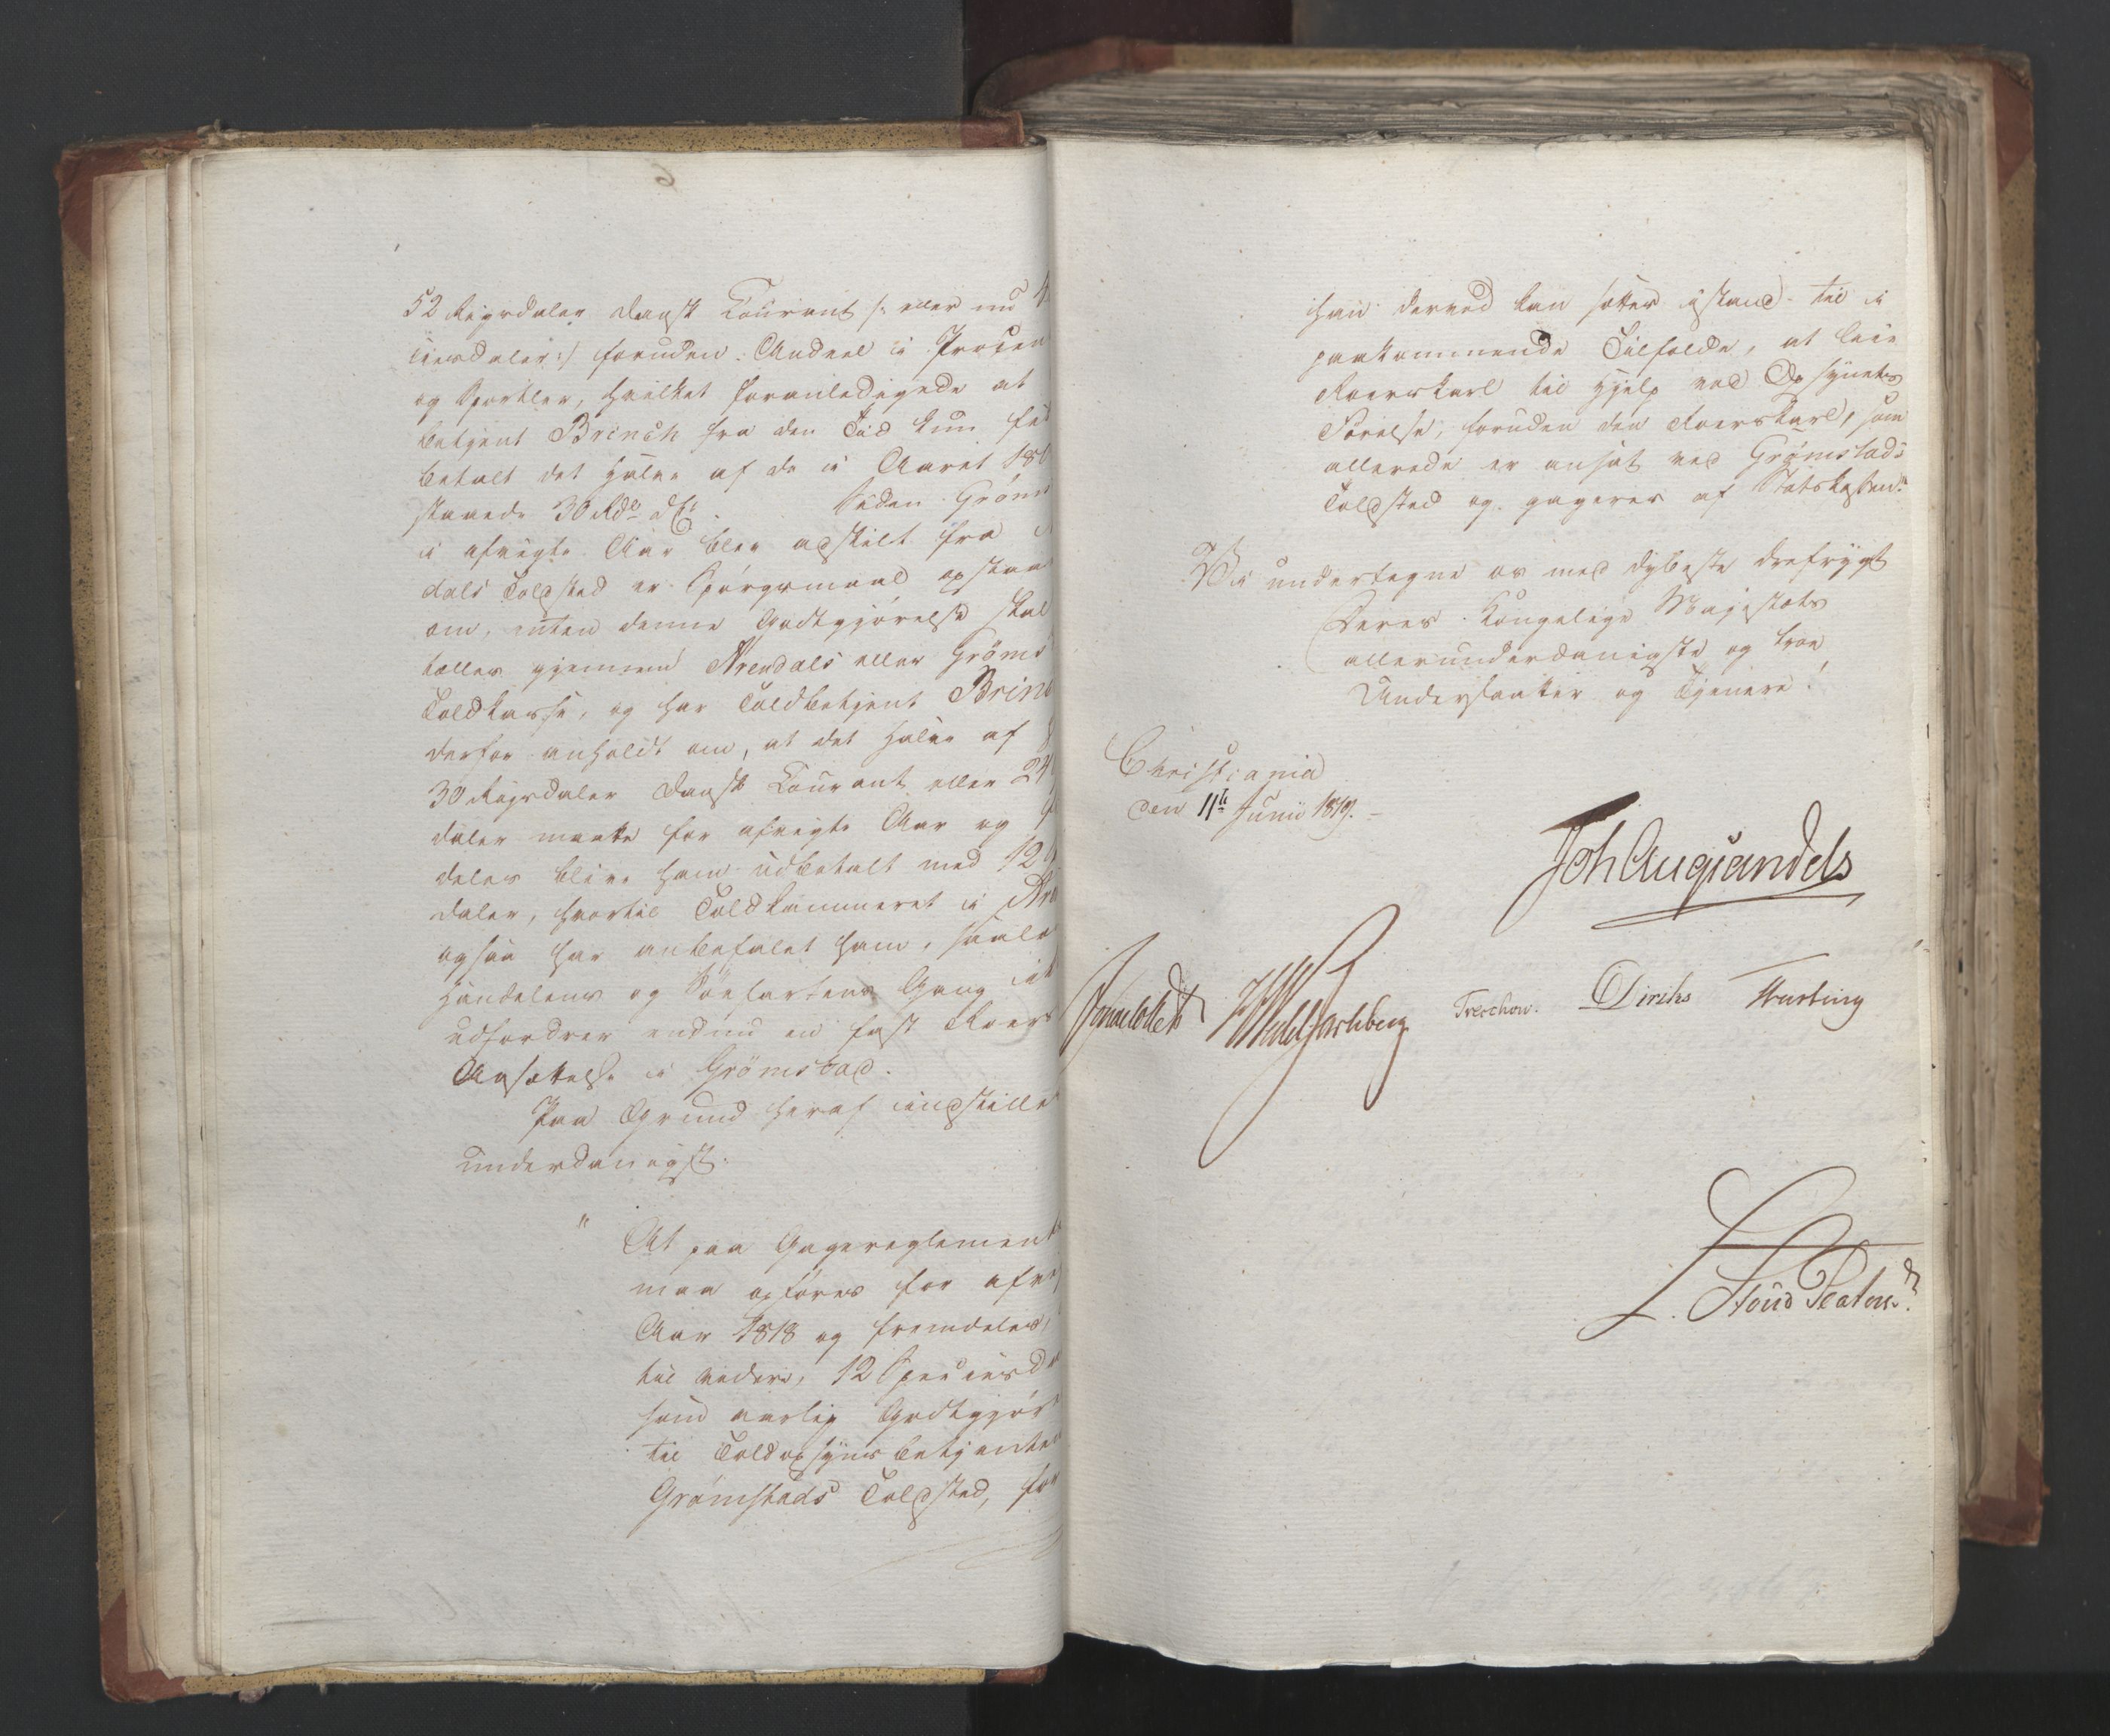 52 Rigsdaler dansk Courant /: eller nu
ciesdaler :/ foruden Andeel i Procen
og Sportler, hvilket foranledigede at
betjent Brinch fra den Tid kun
betalt det halve af de i Aaret 180
staaede 30 Rdlr dCt. Siden Gröms
i afvigte Aar blev adskilt fra
dals Toldsted er Spörgsmaal opstaa
om, enten denne Godtgjörelse skal
tælles gjennem Arendals eller Gröms
Toldkasse, og har Toldbetjent Brin
derfor anholdt om, at det halve af
30 Rigsdaler Dansk Courant eller 24
daler maatte for afvigte Aar og
deles blive ham udbetalt med 12
daler, hvortil Toldkammeret i Are
ogsaa har anbefalet ham, saale
Handelens og Söefartens Gang
udfordrer endnu en fast Roers
Ansættelse i Grömstad.
Paa Grund heraf indstilles
underdanigst:
" At paa Gagereglement
maa opföres for afvig
Aar 1818 og fremdeles,
til videre, 12 Speciesda
som aarlig Godtgjör
til Toldopsynsbetjenten
Grömstads Toldsted, for
han derved kan sættes istand til i
paakommende Tilfælde, at leie
Roerskarl til Hjelp ved Opsynets
Förelse, foruden den Roerskarl, som
allerede er ansat ved Grömstads
Toldsted og gageres af Statskassen."
Vi undertegne os med dybeste Ærefrygt
Deres Kongelige Majestæts
allerunderdanigste og troe
Undersaatter og Tjenere.
Christiania
den 11te Junii 1819.
Joh Aug Sandels
Sommerhielm HWedel Jarlsberg Treschow. Diriks Motzfeldt
L. Stoud Platou